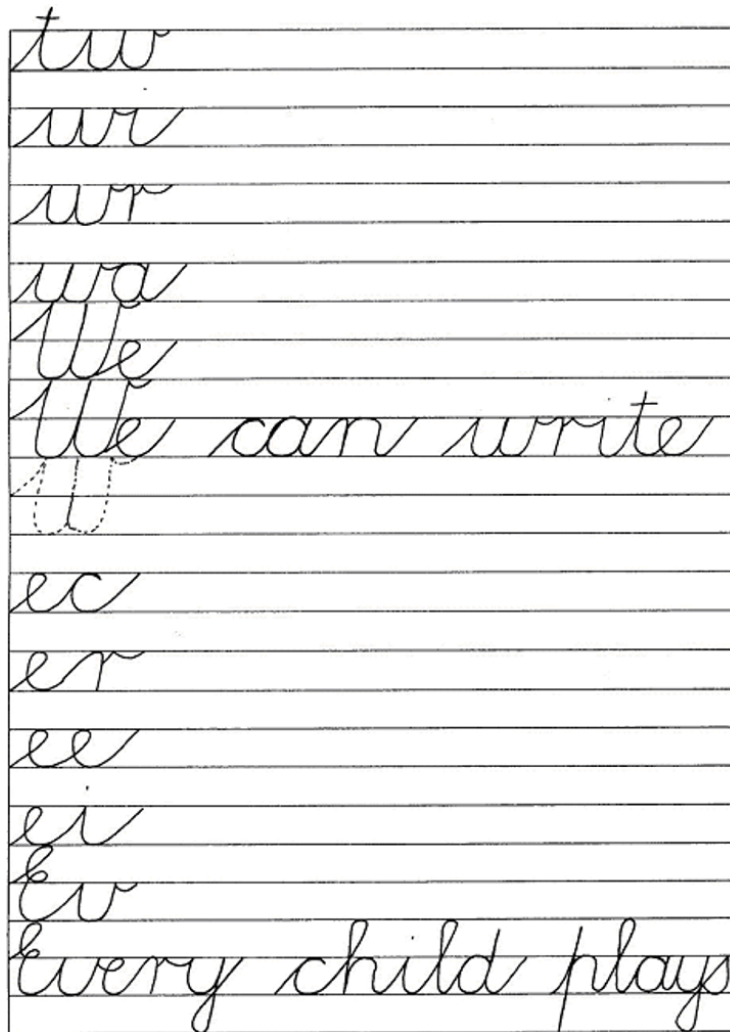 tw
wi
wr
wa
We
We can write
W
ec
er
ee
ei
Ev
Every child plays